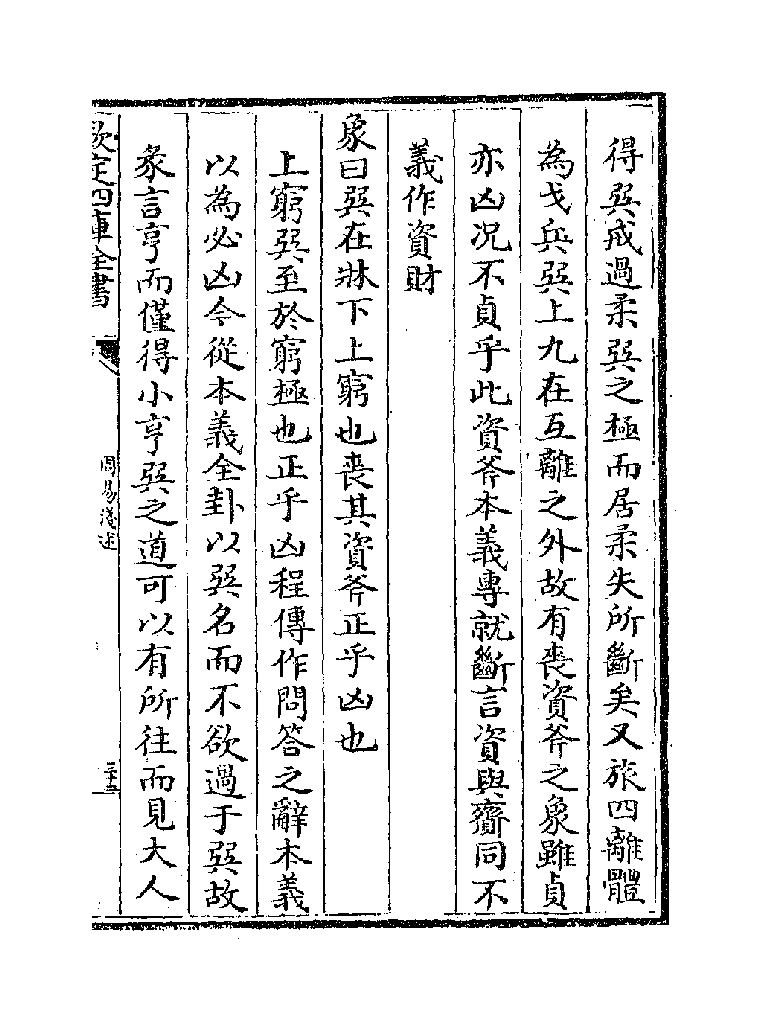 得巽戒過柔巽之極而居柔失所斷矣又旅四離體
為戈兵巽上九在互離之外故有喪資斧之象雖貞
亦凶况不貞乎此資斧本義專就斷言資與齊同不
義作資財
象曰巽在牀下上窮也喪其資斧正乎凶也
上窮巽至於窮極也正乎凶程傳作問答之辭本義
以為必凶今從本義全卦以巽名而不欲過于巽故
彖言亨而僅得小亨巽之道可以有所往而見大人
欽定四庫全書
周易淺述